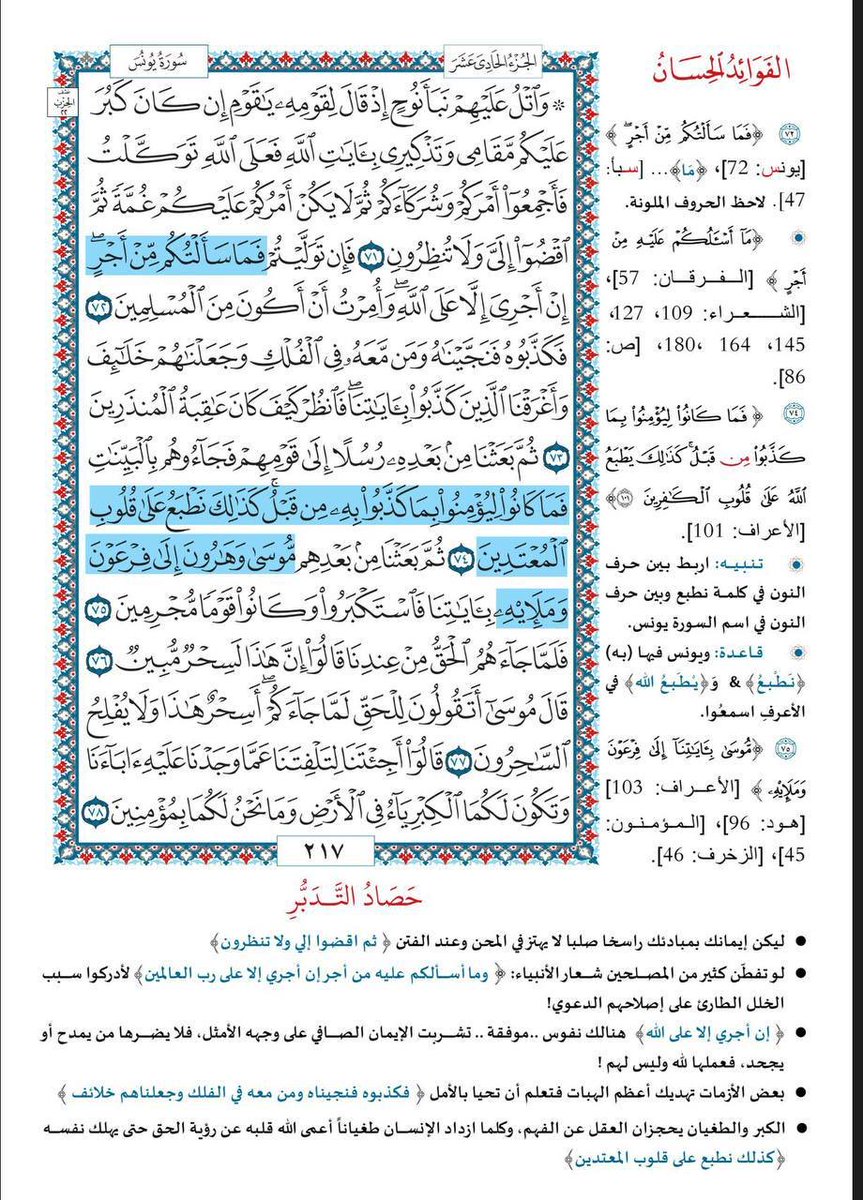 الفَوَائِدُ الْحِسَانُ
الجُزْءُ الحَادِيَ عَشَرَ
سُورَةُ يُونُسَ
نصف
الحزب
٢٢
۞ وَٱتۡلُ عَلَيۡهِمۡ نَبَأَ نُوحٍ إِذۡ قَالَ لِقَوۡمِهِۦ يَٰقَوۡمِ إِن كَانَ كَبُرَ
عَلَيۡكُم مَّقَامِي وَتَذۡكِيرِي بِـَٔايَٰتِ ٱللَّهِ فَعَلَى ٱللَّهِ تَوَكَّلۡتُ
فَأَجۡمِعُوٓاْ أَمۡرَكُمۡ وَشُرَكَآءَكُمۡ ثُمَّ لَا يَكُنۡ أَمۡرُكُمۡ عَلَيۡكُمۡ غُمَّةٗ ثُمَّ
ٱقۡضُوٓاْ إِلَيَّ وَلَا تُنظِرُونِ ٧١ فَإِن تَوَلَّيۡتُمۡ فَمَا سَأَلۡتُكُم مِّنۡ أَجۡرٍۖ
إِنۡ أَجۡرِيَ إِلَّا عَلَى ٱللَّهِۖ وَأُمِرۡتُ أَنۡ أَكُونَ مِنَ ٱلۡمُسۡلِمِينَ ٧٢
فَكَذَّبُوهُ فَنَجَّيۡنَٰهُ وَمَن مَّعَهُۥ فِي ٱلۡفُلۡكِ وَجَعَلۡنَٰهُمۡ خَلَٰٓئِفَ
وَأَغۡرَقۡنَا ٱلَّذِينَ كَذَّبُواْ بِـَٔايَٰتِنَاۖ فَٱنظُرۡ كَيۡفَ كَانَ عَٰقِبَةُ ٱلۡمُنذَرِينَ
٧٣ ثُمَّ بَعَثۡنَا مِنۢ بَعۡدِهِۦ رُسُلًا إِلَىٰ قَوۡمِهِمۡ فَجَآءُوهُم بِٱلۡبَيِّنَٰتِ
فَمَا كَانُواْ لِيُؤۡمِنُواْ بِمَا كَذَّبُواْ بِهِۦ مِن قَبۡلُۚ كَذَٰلِكَ نَطۡبَعُ عَلَىٰ قُلُوبِ
ٱلۡمُعۡتَدِينَ ٧٤ ثُمَّ بَعَثۡنَا مِنۢ بَعۡدِهِم مُّوسَىٰ وَهَٰرُونَ إِلَىٰ فِرۡعَوۡنَ
وَمَلَإِيْهِۦ بِـَٔايَٰتِنَا فَٱسۡتَكۡبَرُواْ وَكَانُواْ قَوۡمٗا مُّجۡرِمِينَ ٧٥
فَلَمَّا جَآءَهُمُ ٱلۡحَقُّ مِنۡ عِندِنَا قَالُوٓاْ إِنَّ هَٰذَا لَسِحۡرٞ مُّبِينٞ ٧٦
قَالَ مُوسَىٰٓ أَتَقُولُونَ لِلۡحَقِّ لَمَّا جَآءَكُمۡۖ أَسِحۡرٌ هَٰذَا وَلَا يُفۡلِحُ
ٱلسَّٰحِرُونَ ٧٧ قَالُوٓاْ أَجِئۡتَنَا لِتَلۡفِتَنَا عَمَّا وَجَدۡنَا عَلَيۡهِ ءَابَآءَنَا
وَتَكُونَ لَكُمَا ٱلۡكِبۡرِيَآءُ فِي ٱلۡأَرۡضِ وَمَا نَحۡنُ لَكُمَا بِمُؤۡمِنِينَ ٧٨
٢١٧
٧٢ ﴿فَمَا سَأَلۡتُكُم مِّنۡ أَجۡرٍۖ﴾
[يونس: 72]، ﴿مَا﴾... [سبأ:
47]. لاحظ الحروف الملونة.
﴿مَآ أَسۡـَٔلُكُمۡ عَلَيۡهِ مِنۡ
أَجۡرٍ﴾ [الفرقان: 57]،
[الشعراء: 109، 127،
145، 164، 180]، [ص:
86].
٧٤ ﴿فَمَا كَانُواْ لِيُؤۡمِنُواْ بِمَا
كَذَّبُواْ مِن قَبۡلُۚ كَذَٰلِكَ يَطۡبَعُ
ٱللَّهُ عَلَىٰ قُلُوبِ ٱلۡكَٰفِرِينَ ١٠١﴾
[الأعراف: 101].
تنبيه: اربط بين حرف
النون في كلمة نطبع وبين حرف
النون في اسم السورة يونس.
قاعدة: ويونس فيها (به)
﴿نَطْبعُ﴾ & وَ﴿يَطْبَعُ الله﴾ في
الأعرفِ اسمعُوا.
٧٥ ﴿مُّوسَىٰ بِـَٔايَٰتِنَآ إِلَىٰ فِرۡعَوۡنَ
وَمَلَإِيْهِۦ﴾ [الأعراف: 103]
[هود: 96]، [المؤمنون:
45]، [الزخرف: 46].
حَصَادُ التَّدَبُّرِ
● ليكن إيمانك بمبادئك راسخا صلبا لا يهتز في المحن وعند الفتن ﴿ثم اقضوا إلي ولا تنظرون﴾
● لو تفطّن كثير من المصلحين شعار الأنبياء: ﴿وما أسألكم عليه من أجر إن أجري إلا على رب العالمين﴾ لأدركوا سبب
الخلل الطارئ على إصلاحهم الدعوي!
● ﴿إن أجري إلا على الله﴾ هنالك نفوس ..موفقة .. تشربت الإيمان الصافي على وجهه الأمثل، فلا يضرها من يمدح أو
يجحد، فعملها لله وليس لهم !
● بعض الأزمات تهديك أعظم الهبات فتعلم أن تحيا بالأمل ﴿فكذبوه فنجيناه ومن معه في الفلك وجعلناهم خلائف﴾
● الكبر والطغيان يحجزان العقل عن الفهم، وكلما ازداد الإنسان طغياناً أعمى الله قلبه عن رؤية الحق حتى يهلك نفسه
﴿كذلك نطبع على قلوب المعتدين﴾